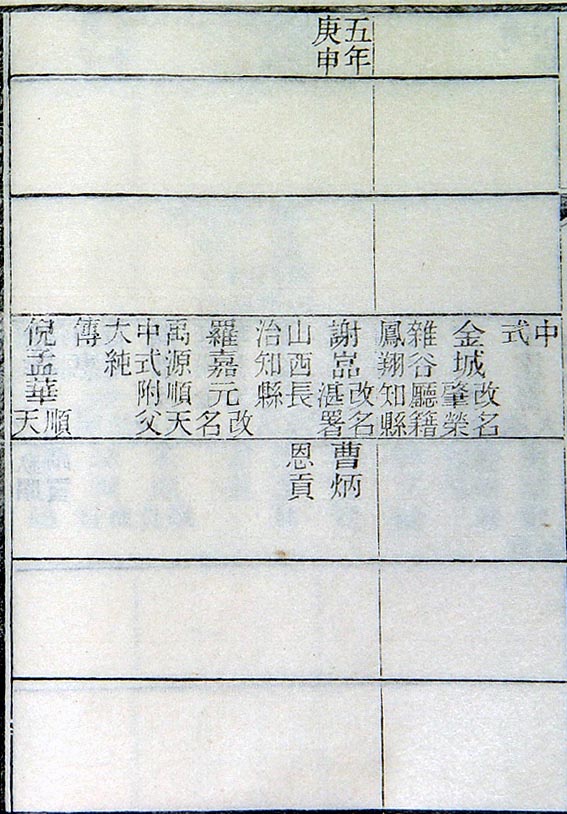 五年
庚申
中
式
金城改名
肇榮
雜谷廳籍
鳳翔知縣
謝嵓改名
湛署
山西長
治知縣
羅嘉元改
名
禹源順天
中式附父
大純
傳
倪孟華順
天
曹炳
恩貢